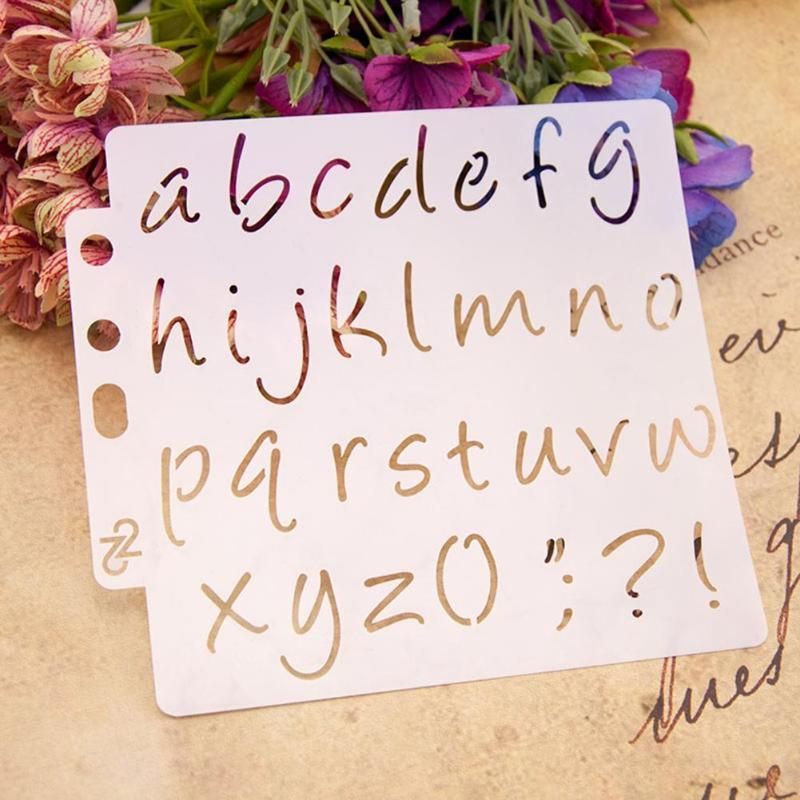 abcdefg
hijklmno
pqrstuvw
xyz() ";?!
dance
ev
ues